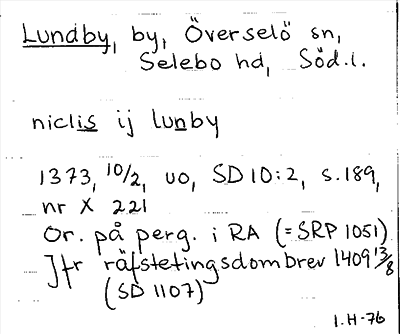 Lundby, by, Överselö sn,
Selebo hd, Söd.l.
niclis ij lunby
1373, 10/2, uo, SD 10:2, s.189,
nr X 221
Or. på perg. i RA (=SRP 1051)
Jfr räfstetingsdombrev 1409 13/8
(SD 1107)
I.H-76